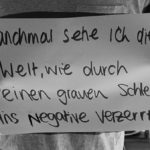 manchmal sehe ich die
Welt, wie durch
einen grauen Schle
ins Negative verzerrt